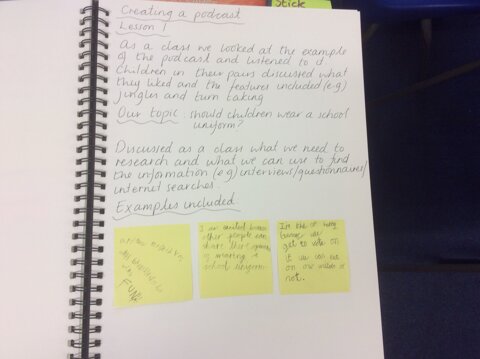 Stick
Creating a podcast
Lesson 1
As a class we looked at the example
of the podcast and listened to it.
Children in their pairs discussed what
they liked and the features included (e.g)
jingles and turn taking
Our topic : should children wear a school
uniform?
Discussed as a class what we need to
research and what we can use to find
the information (e.g) interviews/questionnaires/
internet searches.
Examples included
FUN
I am excited because
other people can
share there
of wearing a
school uniform
I'm
because we
get to vote on
if we can
on our
not.